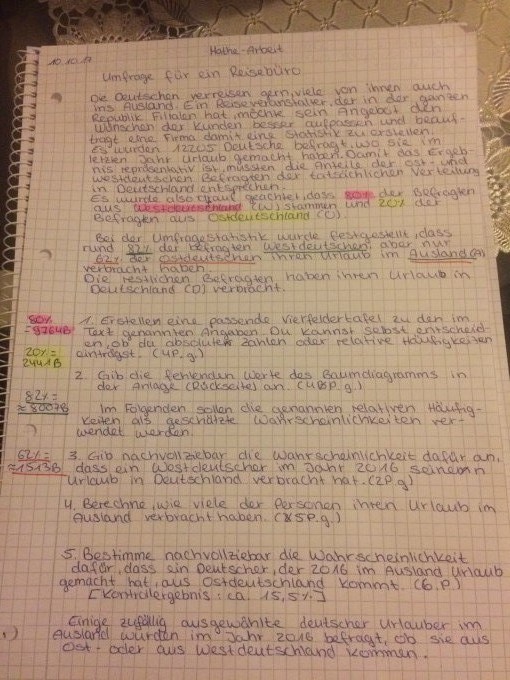 Mathe-Arbeit
10.10.17
Umfrage für ein Reisebüro
Die Deutschen verreisen gern, viele von ihnen auch
ins Ausland. Ein Reiseveranstalter, der in der ganzen
Republik Filialen hat, möchte sein Angebot den
Wünschen der Kunden besser aufpassen und beauf-
tragt eine Firma damit eine Statistik zu erstellen.
Es wurden 12205 Deutsche befragt, wo sie im
letzten Jahr Urlaub gemacht haben. Damit das Ergeb-
nis repräsentativ ist, müssten die Anteile der ost- und
westdeutschen Befragten der tatsächlichen Verteilung
in Deutschland entsprechen.
Es wurde also drauf geachtet, dass 80% der Befragten
aus Westdeutschland (W) stammen und 20% der
Befragten aus Ostdeutschland (O).
Bei der Umfragestatistik wurde festgestellt, dass
rund 82% der befragten Westdeutschen, aber nur
62% der Ostdeutschen ihren Urlaub im Ausland (A)
verbracht haben.
Die restlichen Befragten haben ihren Urlaub in
Deutschland (D) verbracht.
80%
=9764B
20%=
2441B
82%=
≈8007B
62%=
≈1513B
1. Erstellen eine passende Vierfeldertafel zu den im
Text genannten Angaben. Du kannst selbst entscheid-
en, ob du absolute Zahlen oder relative Häufigkeiten
einträgst. (4P.g.)
2. Gib die fehlenden Werte des Baumdiagramms in
der Anlage (Rückseite) an. P.g.)
Im Folgenden sollen die genannten relativen Häufig-
keiten als geschätzte Wahrscheinlichkeiten ver-
wendet werden.
3. Gib nachvollziehbar die Wahrscheinlichkeit dafür an,
dass ein Westdeutscher im Jahr 2016 seinen
Urlaub in Deutschland verbracht hat. (2P.g)
4. Berechne, wie viele der Personen ihren Urlaub im
Ausland verbracht haben. 5P.g.)
5. Bestimme nachvollziehbar die Wahrscheinlichkeit
dafür, dass ein Deutscher, der 2016 im Ausland Urlaub
gemacht hat, aus Ostdeutschland kommt. (6.P.)
[Kontrollergebnis: ca. 15,5%]
Einige zufällig ausgewählte deutscher Urlauber im
Ausland wurden im Jahr 2016 befragt, ob sie aus
Ost- oder aus Westdeutschland kommen.